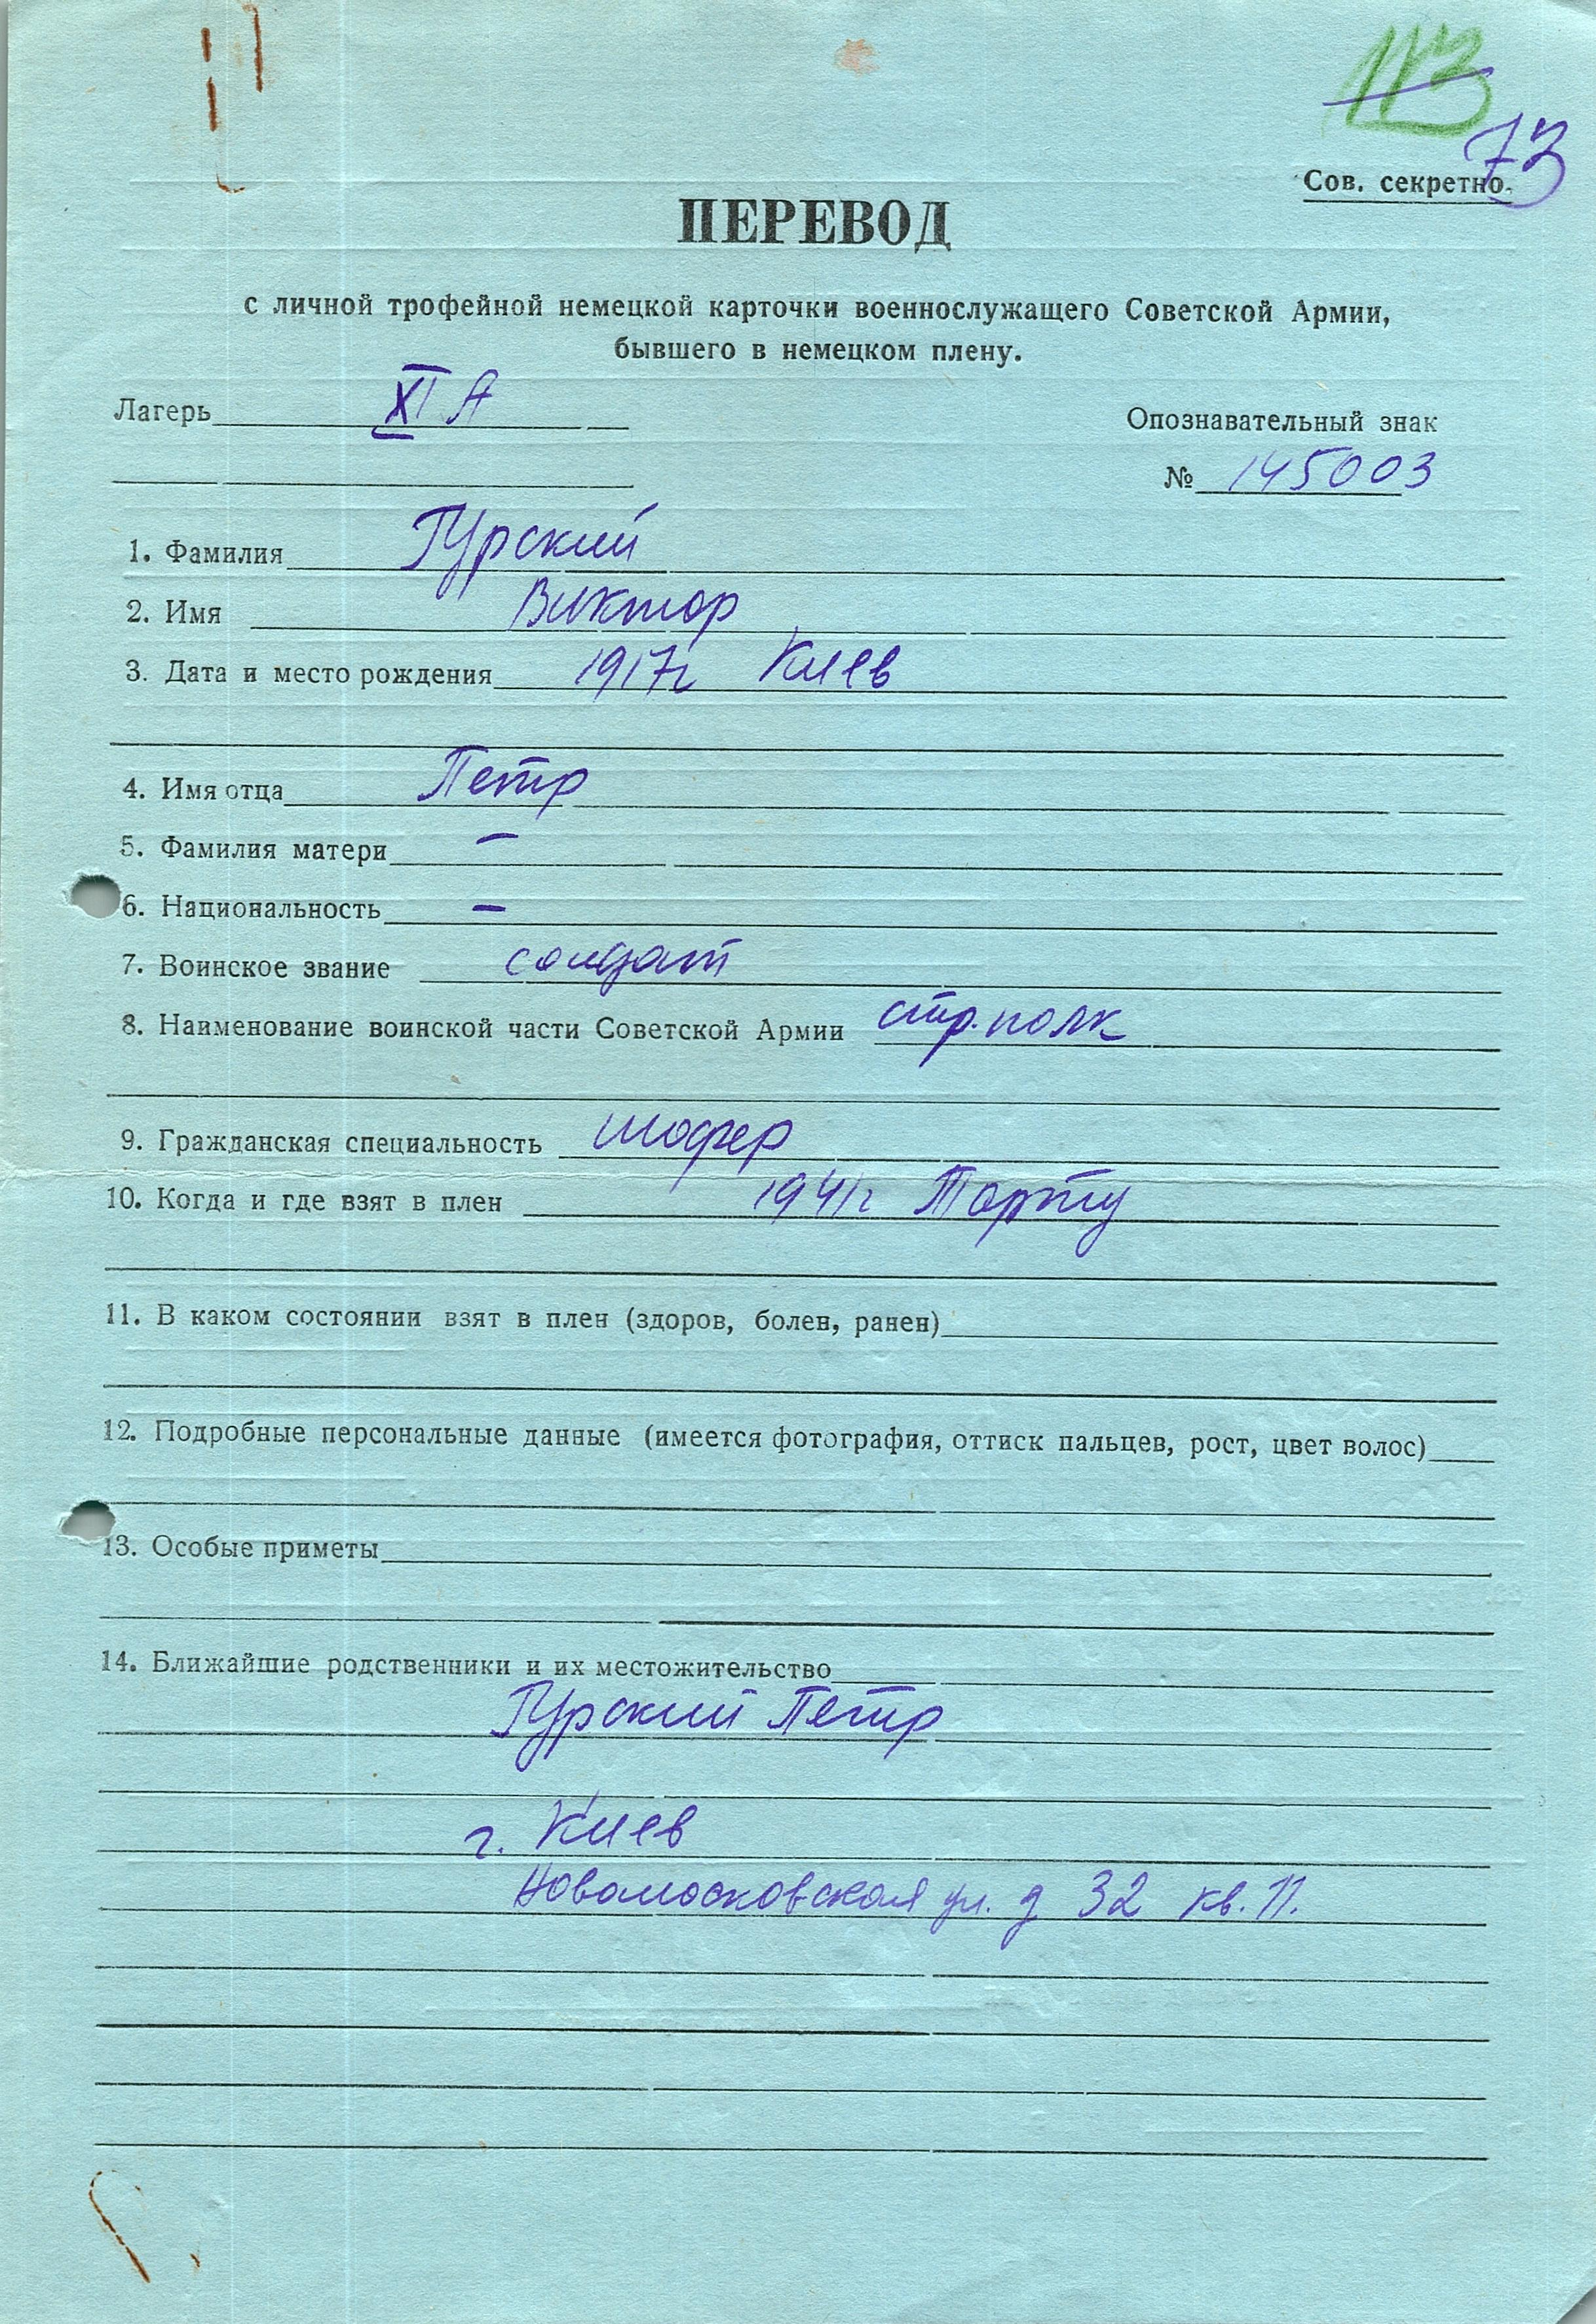 113
73
Сов. секретно.
ПЕРЕВОД
с личной трофейной немецкой карточки военнослужащего Советской Армии,
бывшего в немецком плену.
Лагерь XI A
Опознавательный знак
№ 145003
1. Фамилия Гурский
2. Имя Виктор
3. Дата и место рождения 1917г Киев
4. Имя отца Петр
5. Фамилия матери –
6. Национальность –
7. Воинское звание солдат
8. Наименование воинской части Советской Армии стр. полк
9. Гражданская специальность шофер
10. Когда и где взят в плен 1941г Тарту
11. В каком состоянии взят в плен (здоров, болен, ранен)
12. Подробные персональные данные (имеется фотография, оттиск пальцев, рост, цвет волос)
13. Особые приметы
14. Ближайшие родственники и их местожительство
Гурский Петр
г. Киев
Новомосковская ул. д 32 кв. 11.